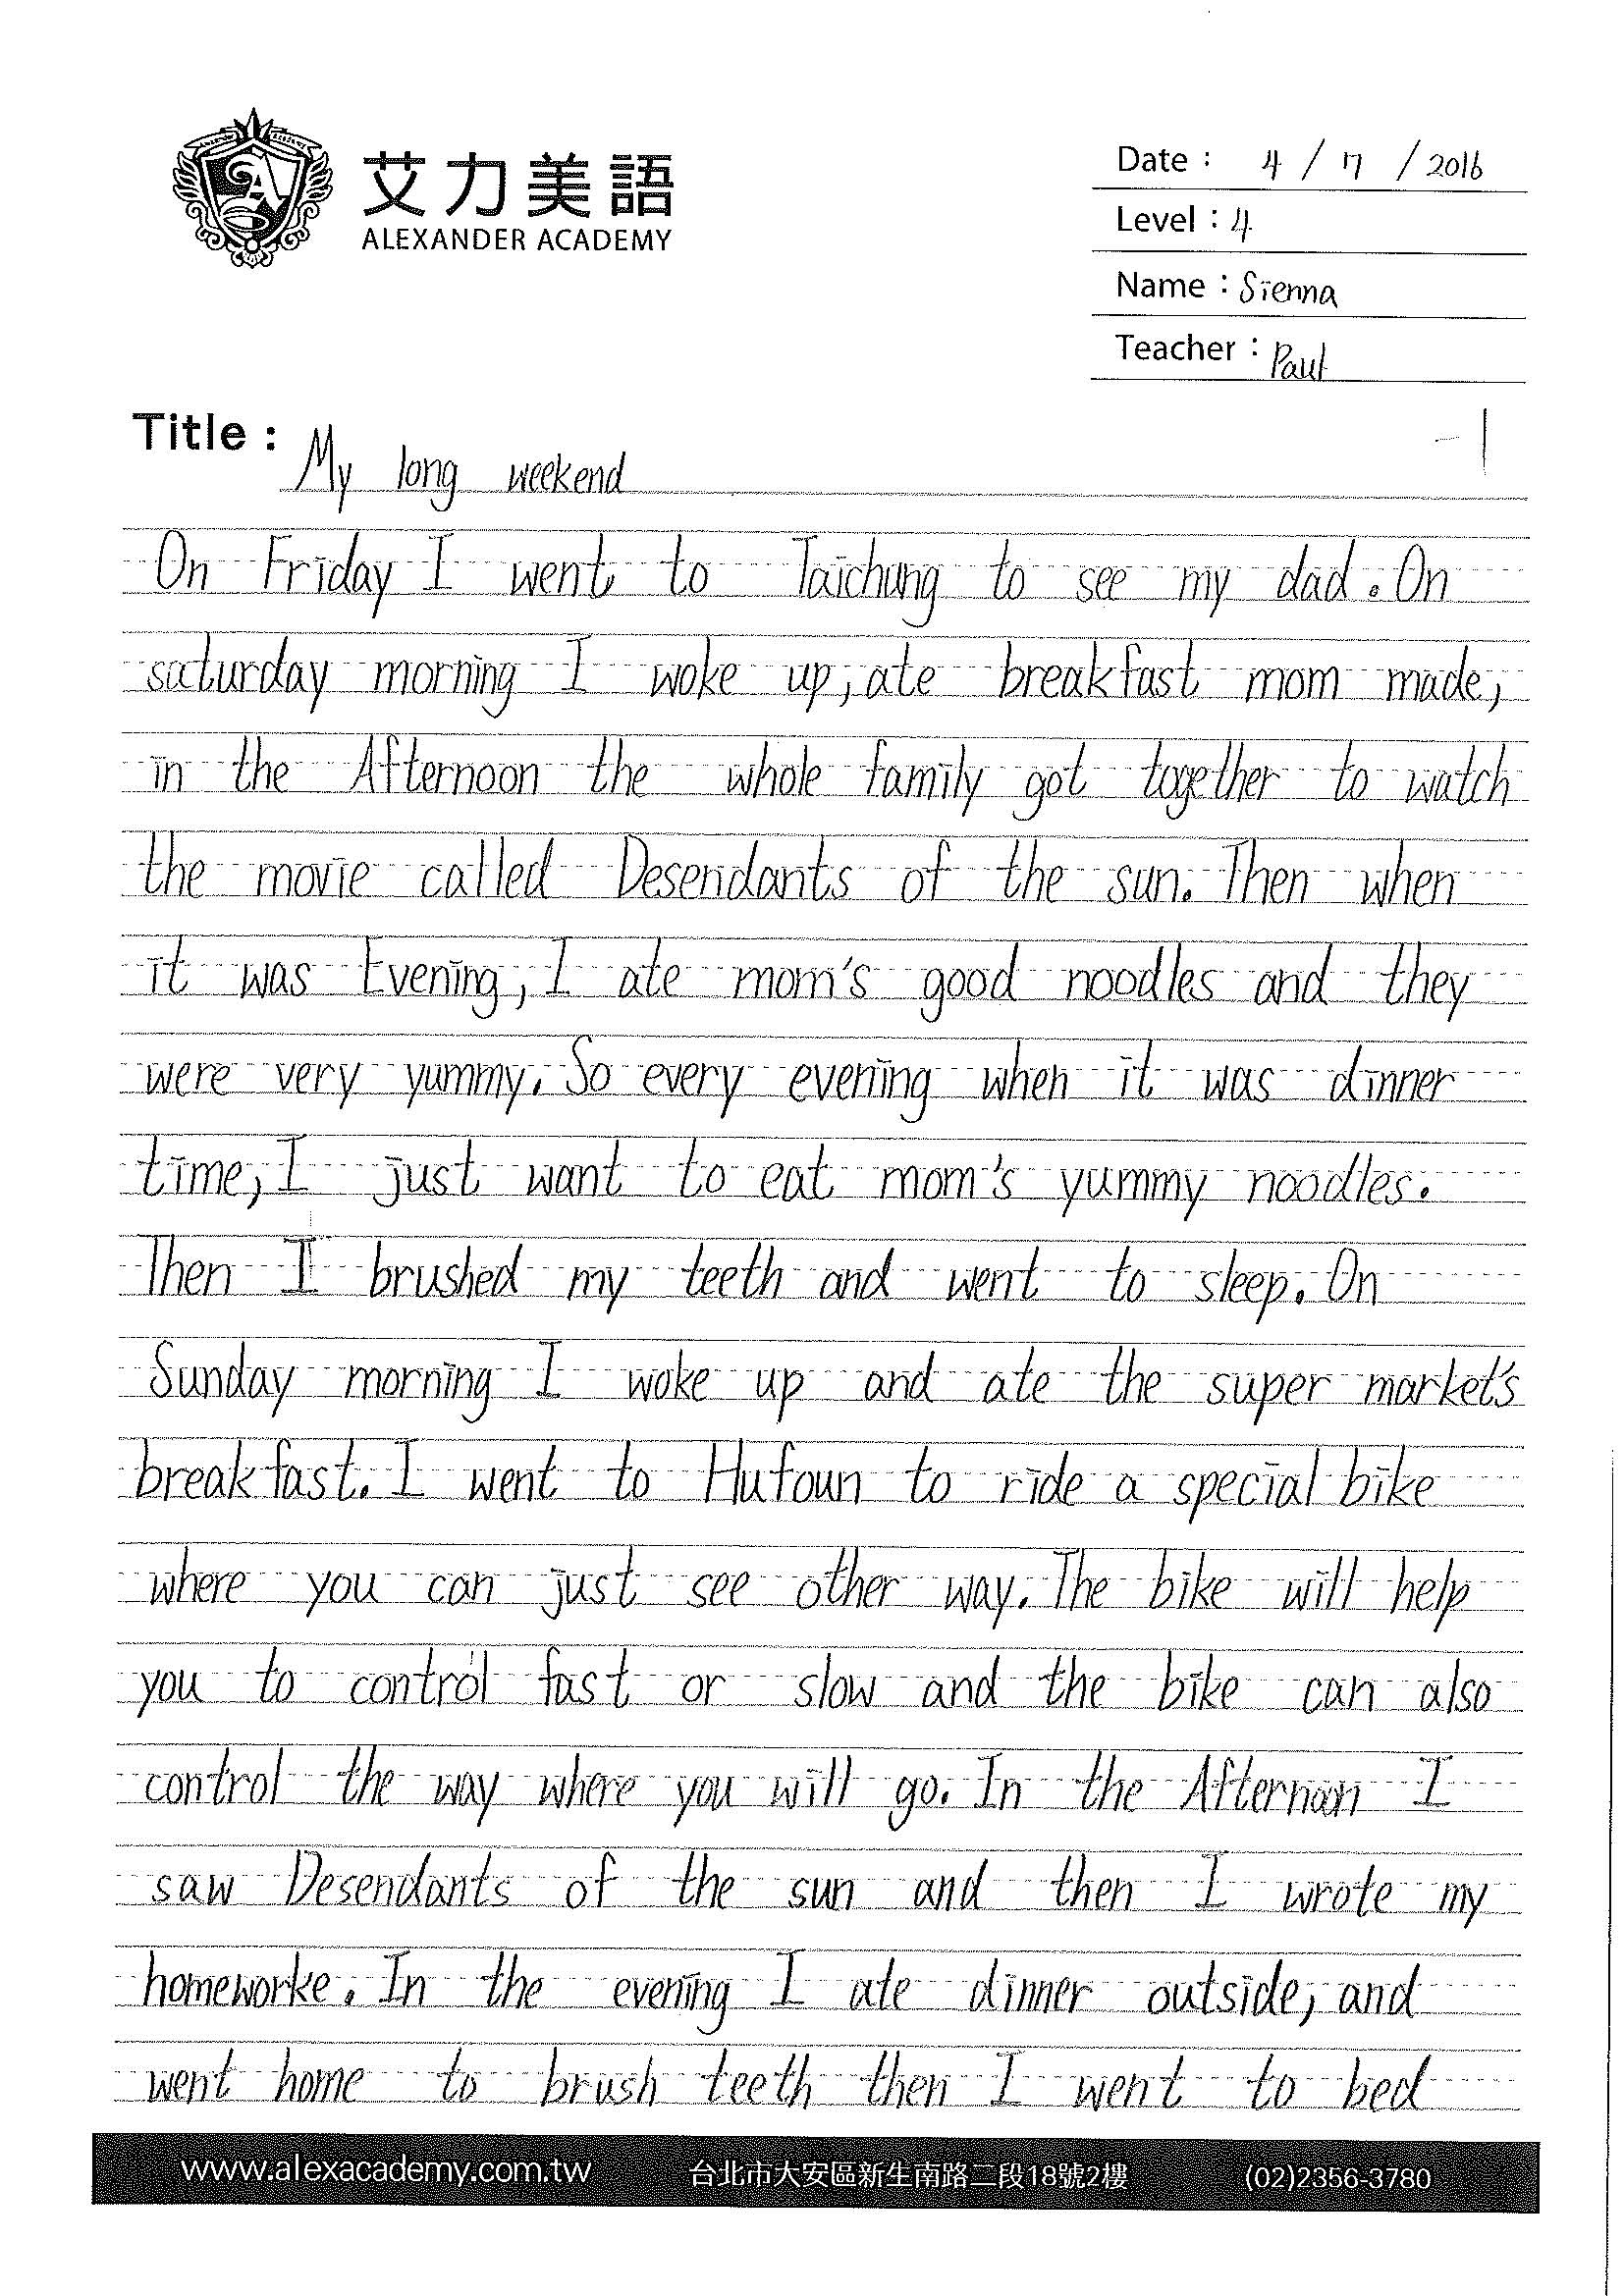 艾力美語
ALEXANDER ACADEMY
Date : 4 / 7 / 2016
Level : 4
Name : Sienna
Teacher : Paul
- 1
Title : My long weekend
On Friday I went to Taichung to see my dad. On
saturday morning I woke up, ate breakfast mom made,
in the Afternoon the whole family got together to watch
the movie called Desendants of the sun. Then when
it was Evening, I ate mom's good noodles and they
were very yummy. So every evening when it was dinner
time, I just want to eat mom's yummy noodles.
Then I brushed my teeth and went to sleep. On
Sunday morning I woke up and ate the super market's
breakfast. I went to Hufoun to ride a special bike
where you can just see other way. The bike will help
you to control fast or slow and the bike can also
control the way where you will go. In the Afternoon I
saw Desendants of the sun and then I wrote my
homeworke. In the evening I ate dinner outside, and
went home to brush teeth then I went to bed
www.alexacademy.com.tw 台北市大安區新生南路二段18號2樓 (02)2356-3780